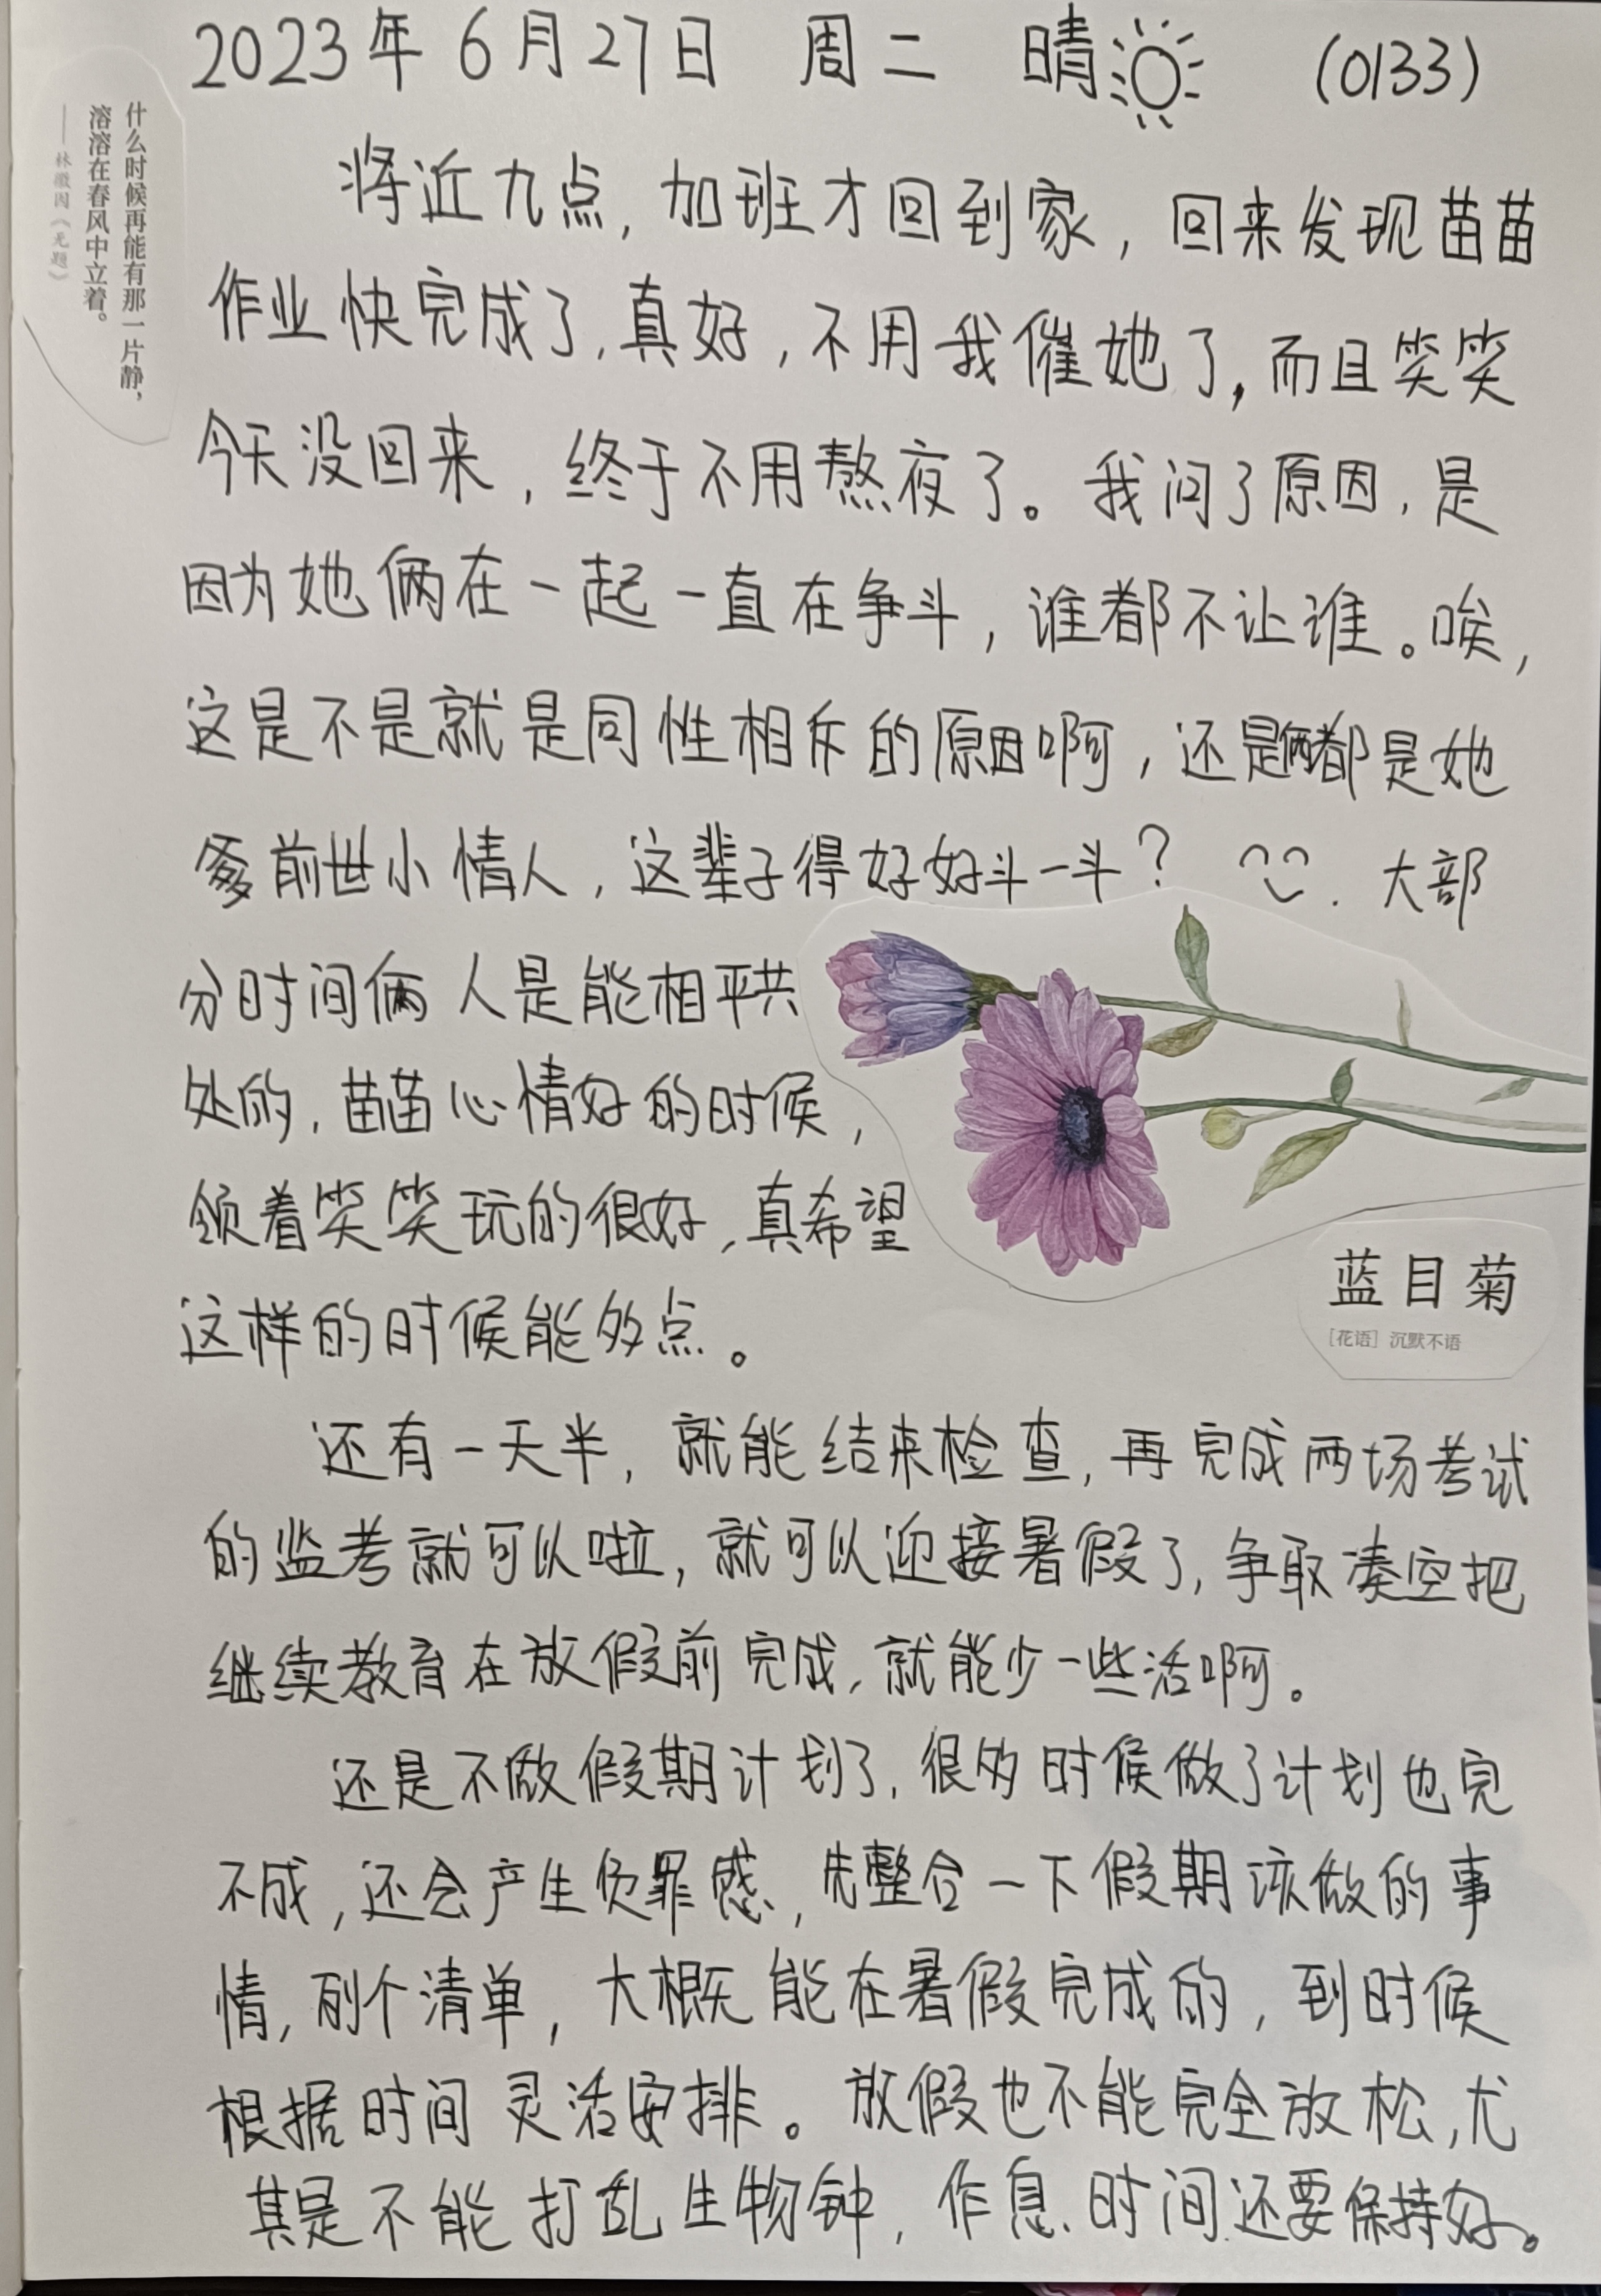 2023年6月27日 周二 晴 (0133)
什么时候再能有那一片静，
溶溶在春风中立着。
——林徽因《无题》
将近九点，加班才回到家，回来发现苗苗
作业快完成了，真好，不用我催她了，而且笑笑
今天没回来，终于不用熬夜了。我问了原因，是
因为她俩在一起一直在争斗，谁都不让谁。唉，
这是不是就是同性相斥的原因啊，还是俩都是她
爹前世小情人，这辈子得好好斗一斗？ 大部
分时间俩人是能相平共
处的，苗苗心情好的时候，
领着笑笑玩的很好，真希望
这样的时候能多点。
蓝目菊
［花语］沉默不语
还有一天半，就能结束检查，再完成两场考试
的监考就可以啦，就可以迎接暑假了，争取凑空把
继续教育在放假前完成，就能少一些活啊。
还是不做假期计划了，很多时候做了计划也完
不成，还会产生负罪感，先整合一下假期该做的事
情，列个清单，大概能在暑假完成的，到时候
根据时间灵活安排。放假也不能完全放松，尤
其是不能打乱生物钟，作息时间还要保持好。